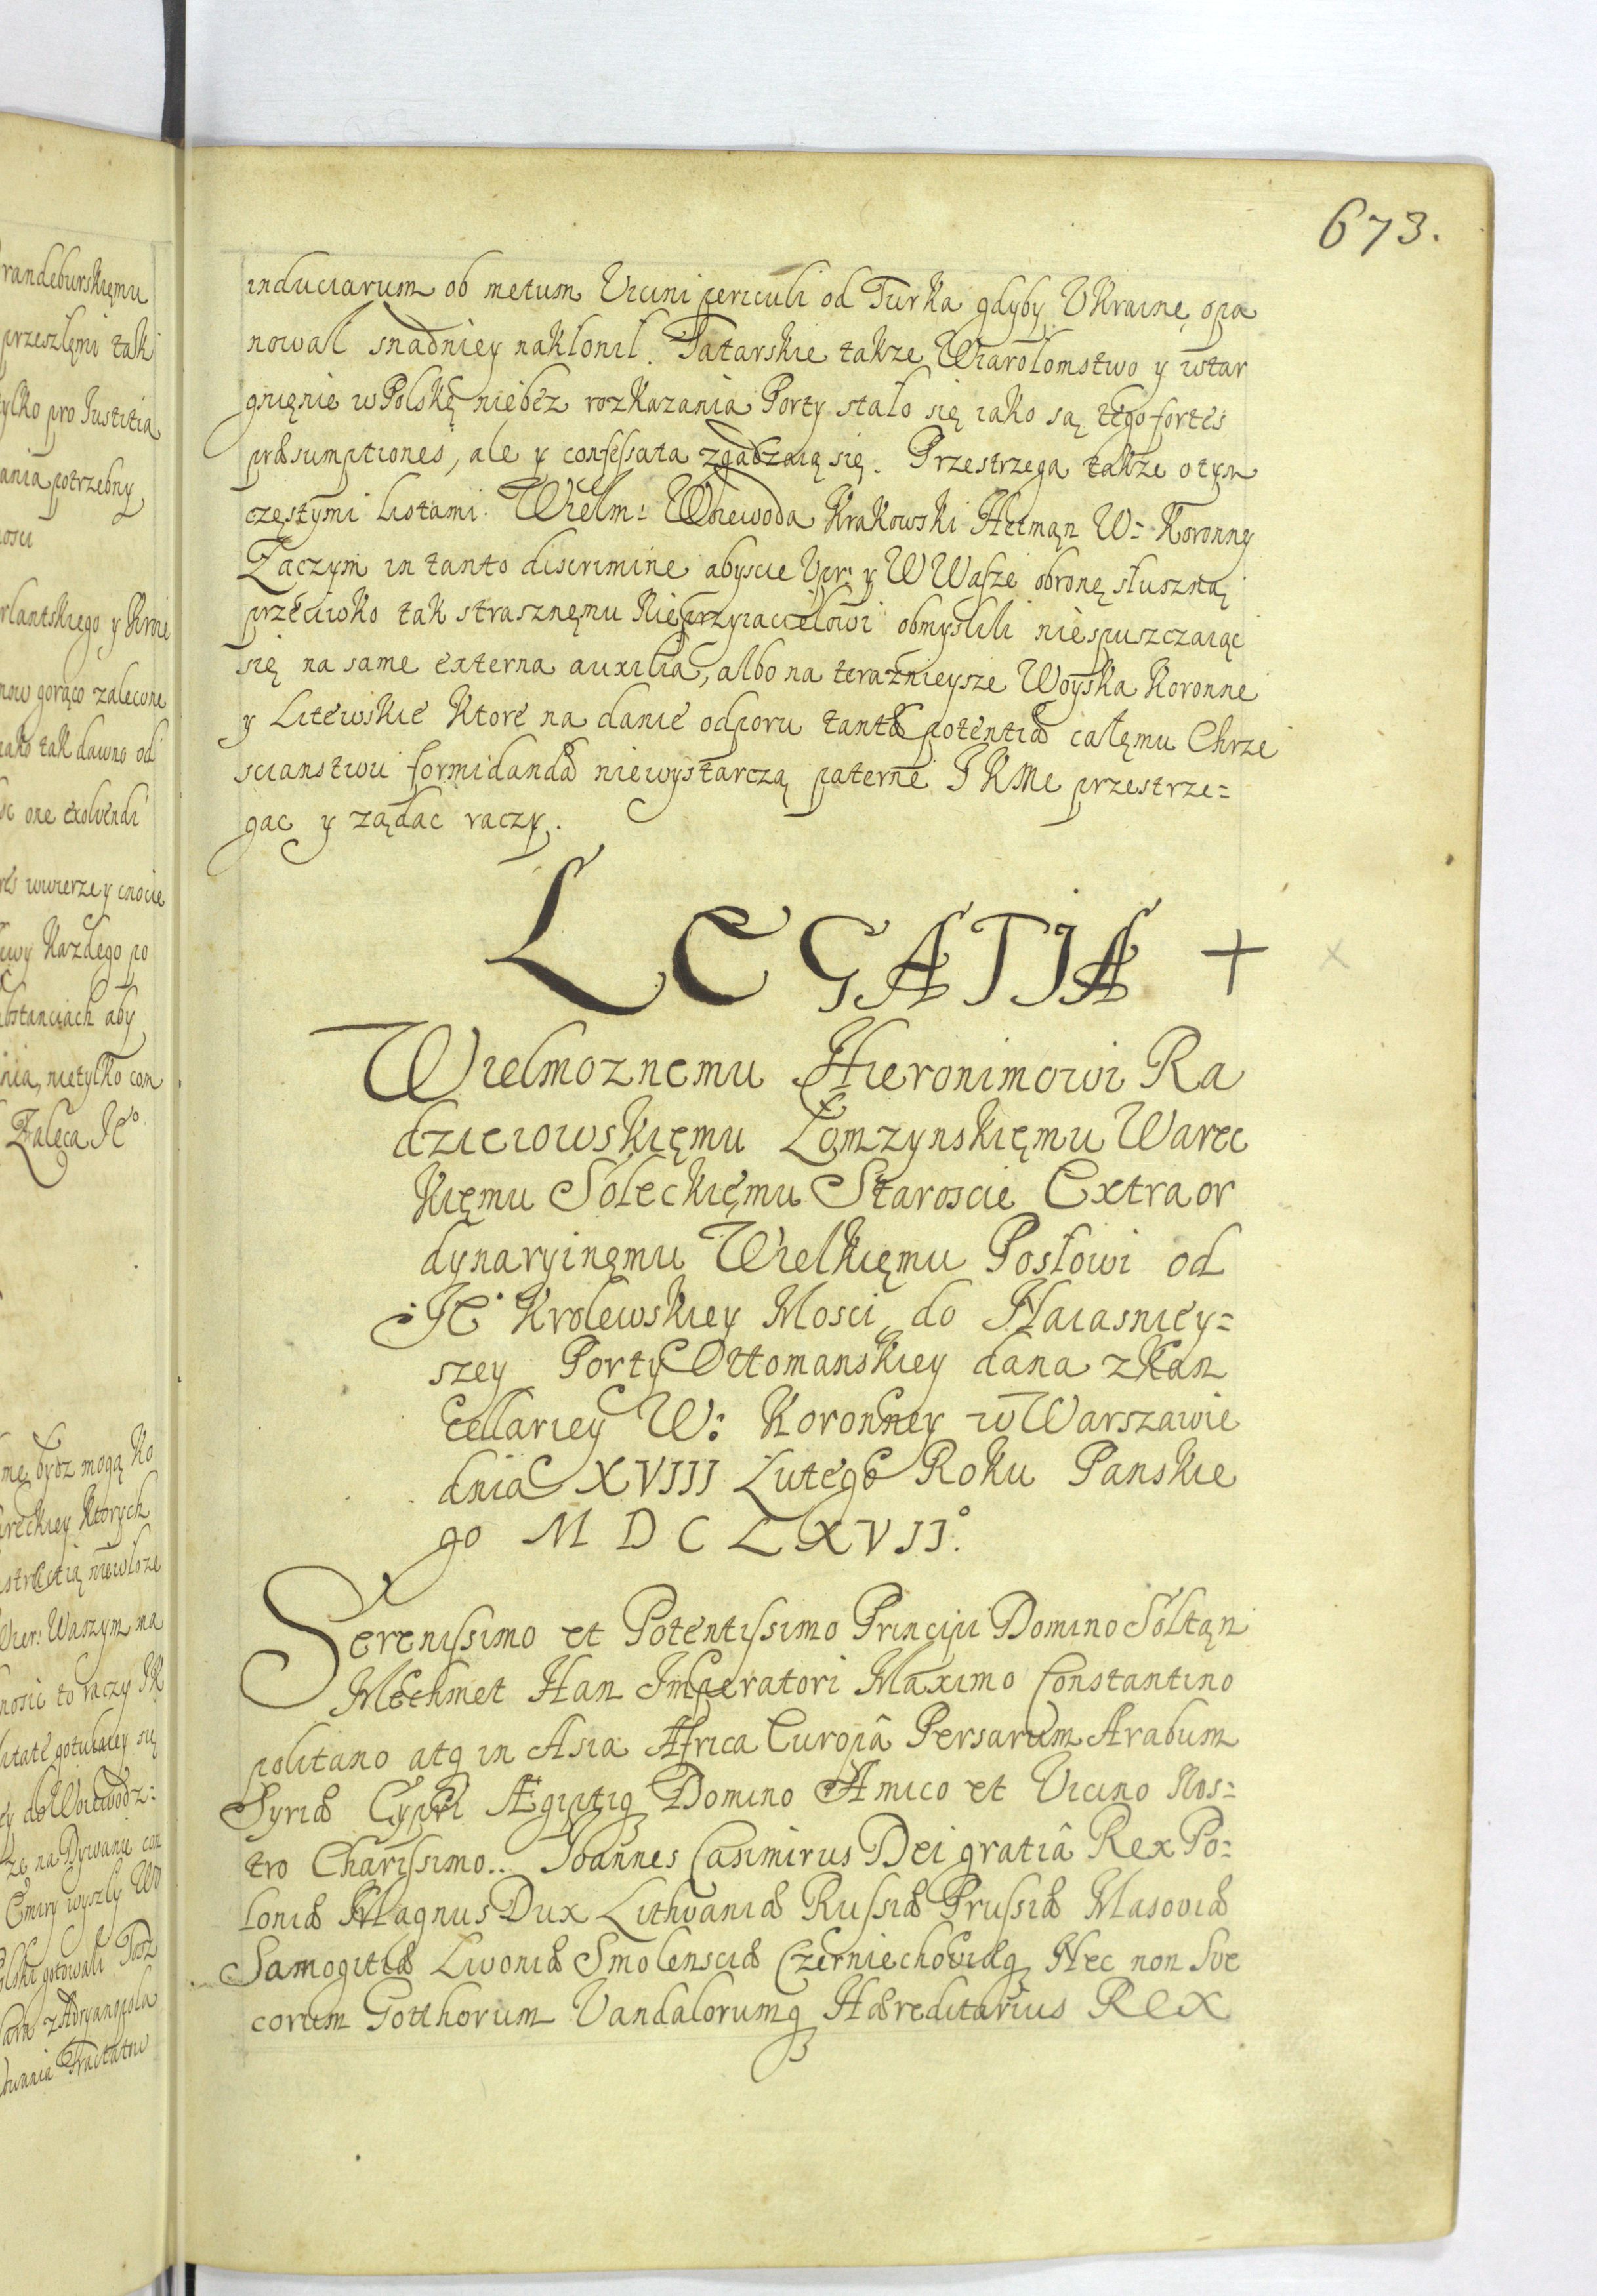 673.
induciarum ob metum Vicini periculi od Turka gdyby Vkrainę opa
nował snadniey nakłonił. Tatarskie takze Wiarołomstwo y wtar
gnięnie w Polskę niebez rozkazania Porty stało się iako są tego fortes
præsumptiones, ale y confessata zgadzaią się. Przestrzega takze o tym
częstymi Listami Wielm: Woiewoda Krakowski Hetman W: Koronny
Zaczym in tanto discrimine abyscie Vpr: y W Wasze obronę słuszną
przeciwko tak strasznęmu Nieprzyiacielowi obmyslili niespuszczaiąc
się na same externa auxilia, albo na teraznieysze Woyska Koronne
y Litewskie Ktore na danie odporu tantæ potentiæ całęmu Chrze
scianstwu formidandæ niewystarczą paterne J K Mc przestrze=
gac y ządac raczy.
LEGATIA +
Wielmoznemu Hieronimowi Ra
dzieiowskięmu Łomzynskięmu Warec
kięmu Soleckięmu Staroscie Extraor
dynaryinęmu Wielkięmu Posłowi od
Je° Krolewskiey Mosci do Naiasniey=
szey Porty Ottomanskiey dana z Kan
cellariey W: Koronney w Warszawie
dnia XVIII Lutego Roku Panskie
go M D C L X V I I°.
Serenissimo et Potentissimo Principi Domino Sołtąn
Mechmet Han Imperatori Maximo Constantino
politano atq in Asia Africa Europâ Persarum Arabum
Syriæ Cypri Ægiptiq Domino Amico et Vicino Nos=
tro Charissimo.. Joannes Casimirus Dei gratiâ Rex Po=
loniæ Magnus Dux Lithvaniæ Russiæ Prussiæ Masoviæ
Samogitiæ Livoniæ Smolensciæ Czerniechoviæq Nec non Sve
corum Gotthorum Vandalorumq Hæreditarius Rex
randeburskięmu
przeszlęmi tak
ylko pro Justitia
ania potrzebny
osci
rlantskiego y
now gorąco zalecone
iako tak dawno od
one exolvendi
wwierze y cnocie
Kazdego po
bstanciach aby
nia, nietylko con
Zaleca Je°
bydz mogą Ko
reckiey Ktorych
strictią niewłoze
Waszym ma
nosci to raczy JK
gotuiacey się
do Woiewodz:
ze na Dywanie con
Emiry wyszly
gotowali
z Adryanopola
wania Tractatow